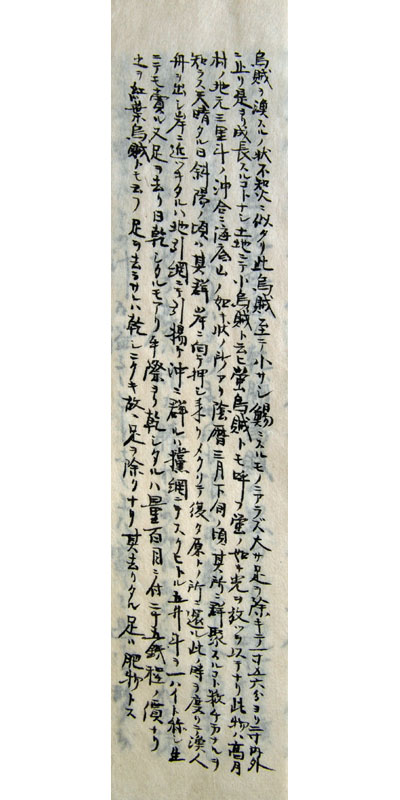 烏賊ヲ漁スルノ状不知火ニ似タリ此烏賊至テ小サシ鯣ニスルモノニアラズ大サ足ヲ除キテ一寸五六分ヨリ二寸内外
ニ止リ是ヨリ成長スルコトナシ土地ニテ小烏賊ト云ヒ螢烏賊トモ呼フ螢ノ如キ光ヲ放ツヲ以テナリ此物ハ高月
村ノ地元三里斗ノ沖合ニ海底山ノ如キ状ノ所アリ陰暦三月下旬ノ頃其所ニ群聚スルコト数ケアナルヲ
知ラス天晴タル日斜陽ノ頃ハ其群岸ニ向テ押シ来リイクリテ復タ原トノ所ニ還ル此ノ時ヲ度リテ漁人
舟ヲ出シ岸ニ近ツキタルハ地引網ニテ引揚ケ沖ニ群ルハ攩網ニテスクヒトル五升斗ヲ一ハイト称シ生
ニテモ賣ル又足ヲ去リ日乾シタルモアリ手際ヨク乾シタルハ量百目ニ付二十五銭程ノ價ナリ
之ヲ紅葉烏賊トモ云フ足ヲ去ルサレハ乾シニクキ故ニ足ヲ除クナリ其去リタル足ハ肥物トス